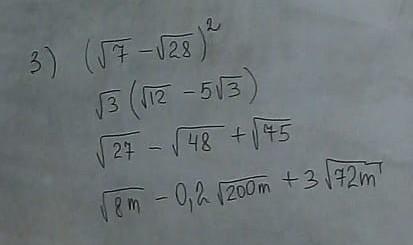 3) (√7 − √28)²
√3 (√12 − 5√3)
√27 − √48 + √75
√8m − 0,2√200m + 3√72m